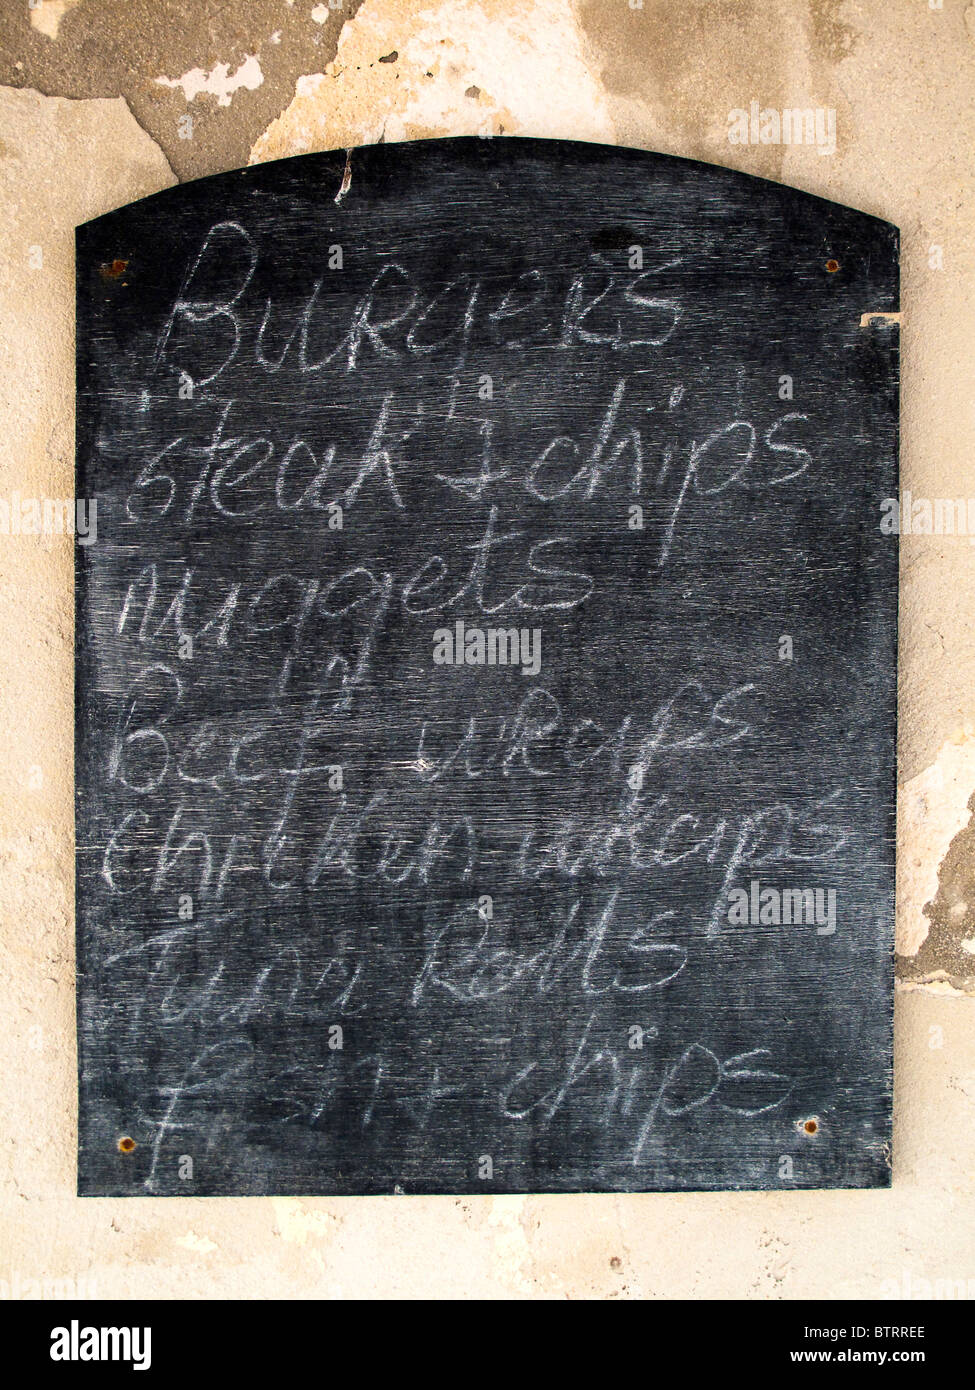 Burgers
Steak + chips
nuggets
Beef wraps
chicken wraps
Tuna Rolls
fish + chips
alamy
Image ID: BTRREE
www.alamy.com